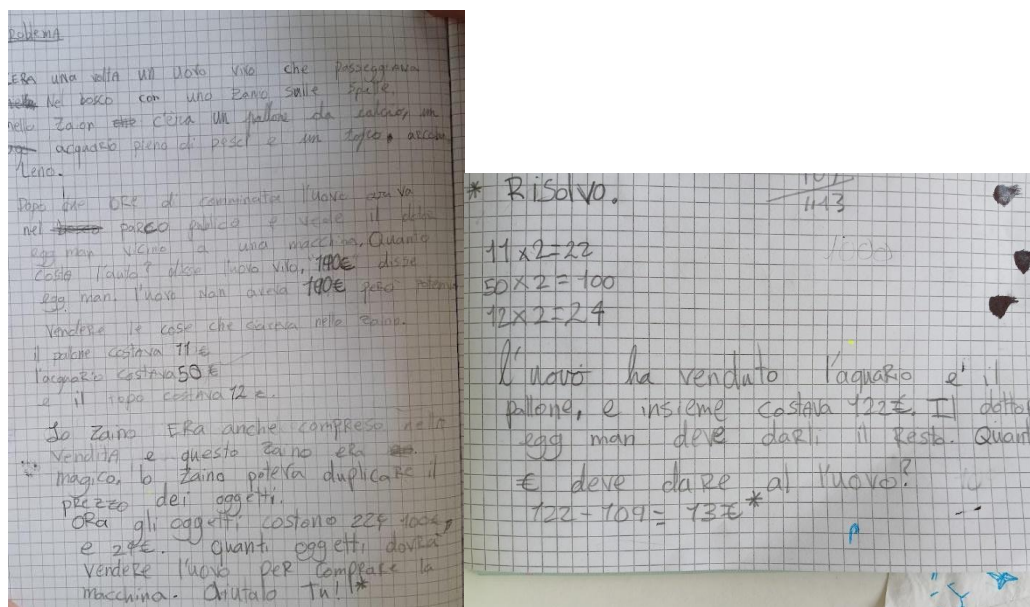 Problema
C'ERA una volta un uovo vivo che passeggiava
nel bosco con uno zaino sulle spalle.
nello zaon c'era un pallone da calcio, un
acquario pieno di pesci e un topo,
leno.
Dopo due ORE di camminata l'uovo
nel parco publico e vede il
egg man vicino a una macchina. Quanto
costa l'auto? disse l'uovo vivo, disse
egg man. l'uovo non aveva però
vendere le cose che nello zaino.
il palone costava 11 €
l'acquario costava 50 €
e il topo costava 12 €.
Lo zaino ERA anche compreso nella
vendita e questo zaino era
magico, lo zaino poteva duplicare il
prezzo dei oggetti.
ORA gli oggetti costono 22€ 100€,
e 24€. quanti oggetti dovrà
vendere l'uovo per comprare la
macchina. Aiutalo tu! !*
* Risolvo.
11 x 2 = 22
50 x 2 = 100
12 x 2 = 24
l'uovo ha venduto l'aquario e' il
pallone, e insieme costava 122€. Il dottor
egg man deve darli il resto. Quant
€ deve dare al l'uovo?
122 - 109 = 13€*